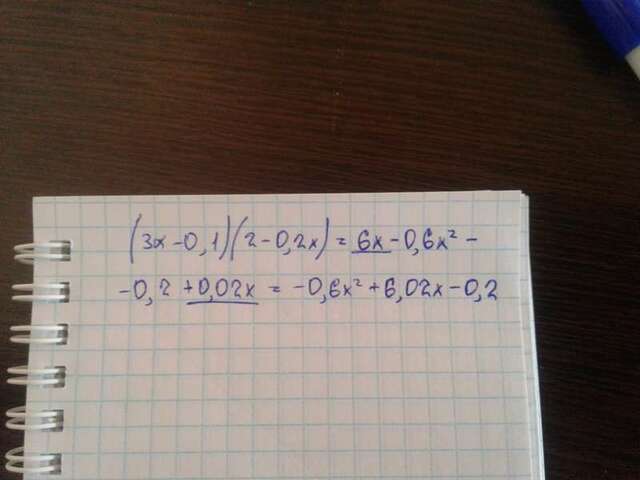 (3x-0,1)(2-0,2x) = 6x-0,6x²-
-0,2+0,02x = -0,6x²+6,02x-0,2